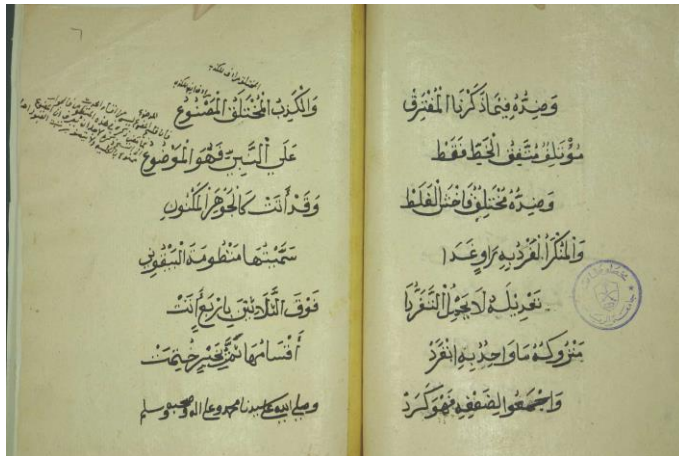 وَضِدُّهُ فِيمَا ذَكَرْنَا الْمُفْتَرِقْ
مُؤْتَلِفٌ مُتَّفِقُ الْخَطِّ فَقَطْ
وَضِدُّهُ مُخْتَلِفٌ فَاخْشَ الْغَلَطْ
وَالْمُنْكَرُ الْفَرْدُ بِهِ رَاوٍ غَدَا
تَعْدِيلُهُ لَا يَحْمِلُ التَّفَرُّدَا
مَتْرُوكُهُ مَا وَاحِدٌ بِهِ انْفَرَدْ
وَاجْمَعُوا لِضَعْفِهِ فَهُوَ كَرَدْ
٦
وَالْكَذِبُ الْمُخْتَلَقُ الْمَصْنُوعُ
عَلَى النَّبِيِّ فَهُوَ الْمَوْضُوعُ
وَقَدْ أَتَتْ كَالْجَوْهَرِ الْمَكْنُونِ
سَمَّيْتُهَا مَنْظُومَةَ الْبَيْقُونِي
فَوْقَ الثَّلَاثِينَ بِأَرْبَعٍ أَتَتْ
أَقْسَامُهَا ثُمَّ بِخَيْرٍ خُتِمَتْ
وصلى الله على سيدنا محمد وعلى اله وصحبه وسلم